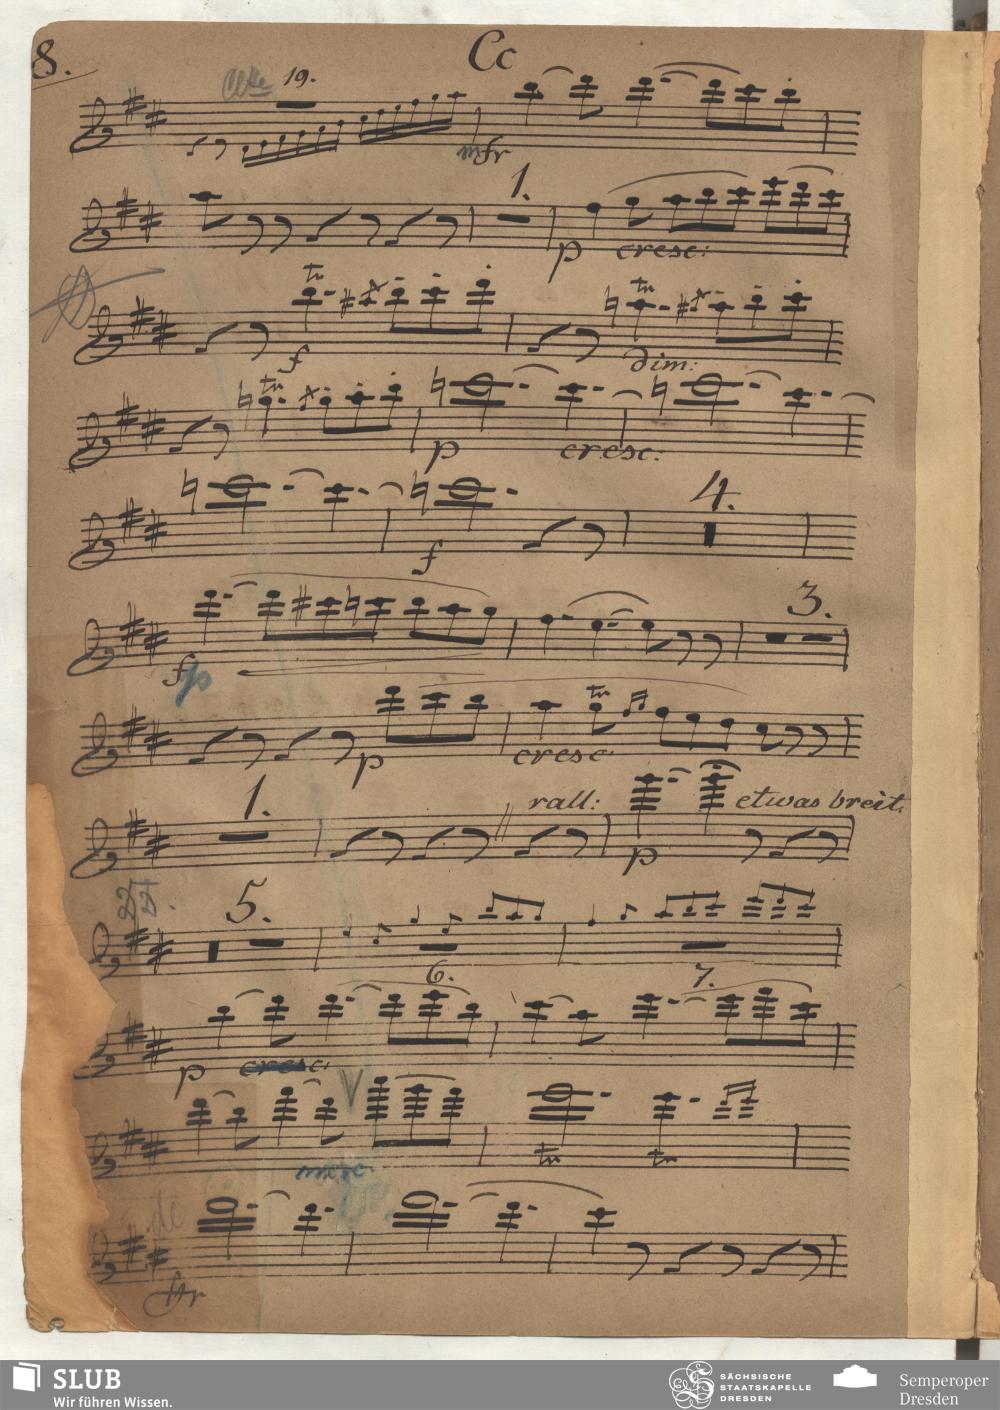 8.
Cc
19.
mfr
1.
p cresc:
tr tr
f dim:
tr
p cresc:
4.
f
3.
f p
tr
p cresc:
1. rall: etwas breit.
p
5.
6. 7.
p cresc:
tr tr
SLUB
Wir führen Wissen.
SÄCHSISCHE
STAATSKAPELLE
DRESDEN
Semperoper
Dresden